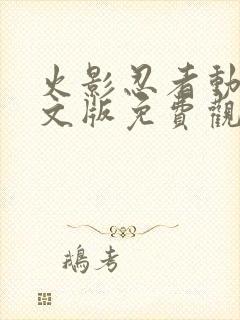 火影忍者動
文版免費觀
鵝考